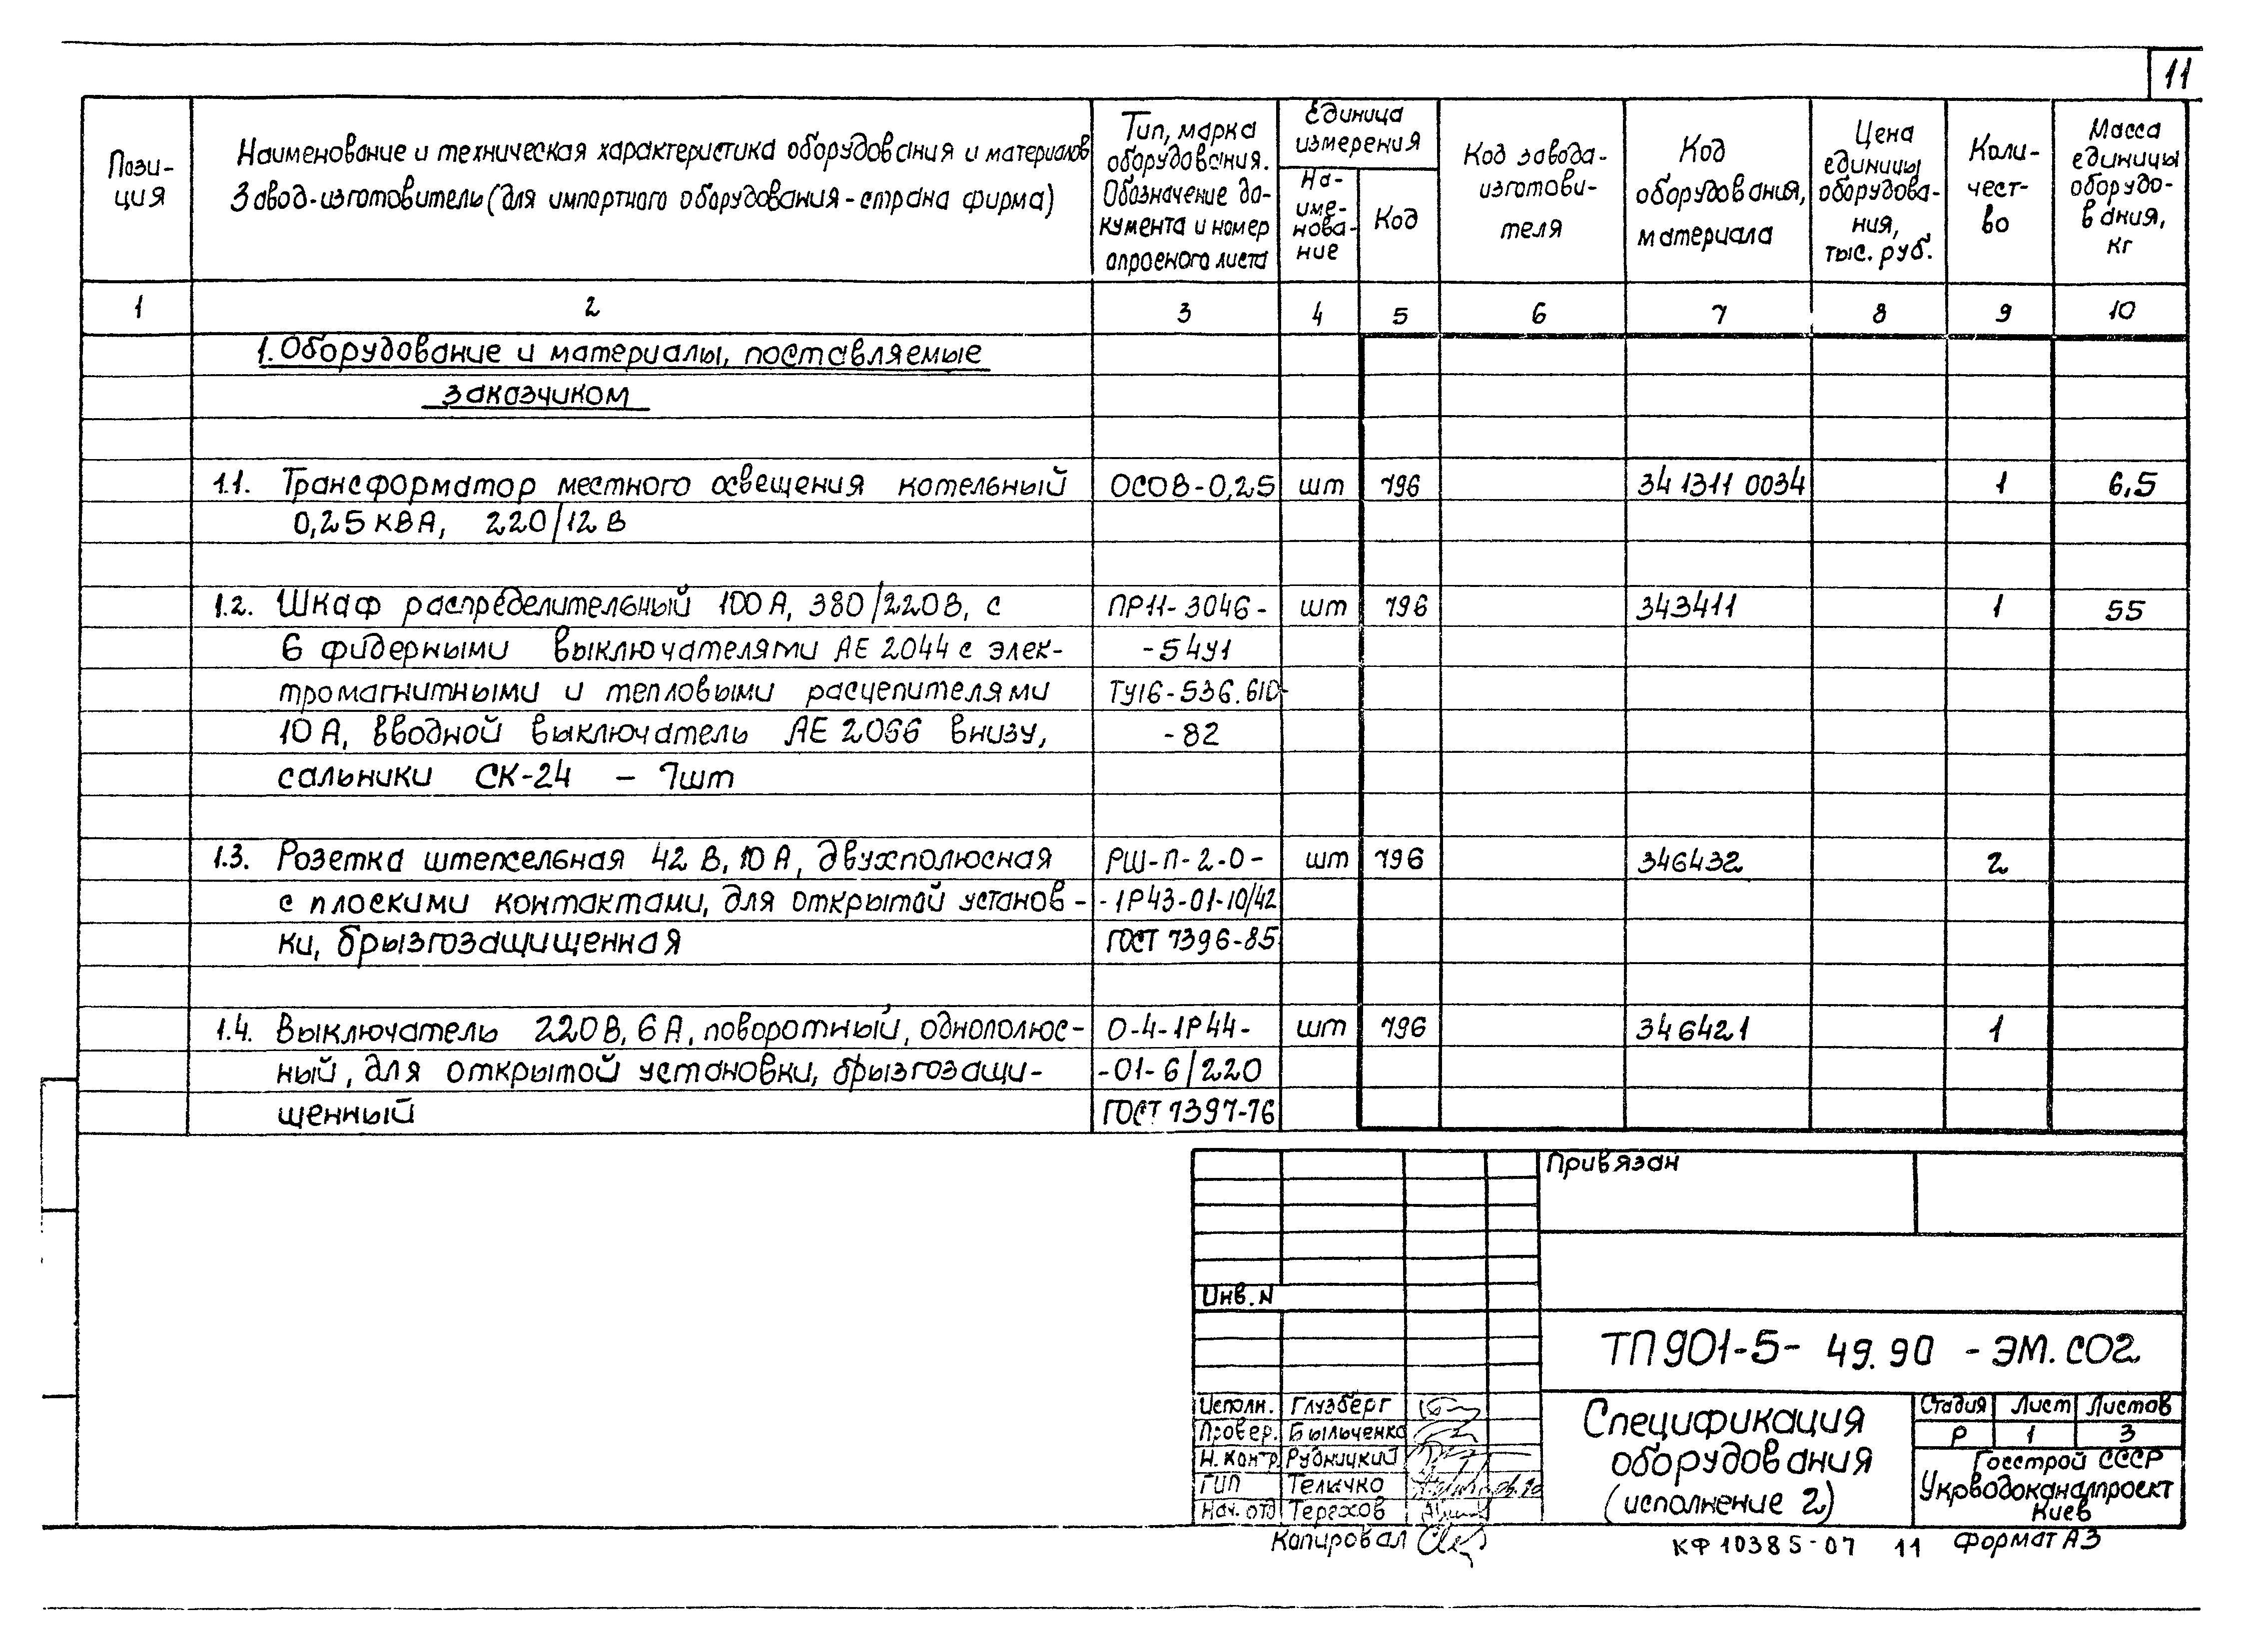 11
Пози-
ция
Наименование и техническая характеристика оборудования и материалов
Завод-изготовитель (для импортного оборудования - страна фирма)
Тип, марка
оборудования.
Обозначение до-
кумента и номер
опросного листа
Единица
измерения
На-
име-
нова-
ние
Код
Код завода-
изготови-
теля
Код
оборудования,
материала
Цена
единицы
оборудова-
ния,
тыс. руб.
Коли-
чест-
во
Масса
единицы
оборудо-
вания,
кг
1 2 3 4 5 6 7 8 9 10
1. Оборудование и материалы, поставляемые
заказчиком
1.1. Трансформатор местного освещения котельный ОСОВ-0,25 шт 796 34 1311 0034 1 6,5
0,25 КВА, 220/12 В
1.2. Шкаф распределительный 100 А, 380/220В, с ПР11-3046- шт 796 343411 1 55
6 фидерными выключателями АЕ 2044 с элек- -54У1
тромагнитными и тепловыми расцепителями ТУ16-536.610-
10 А, вводной выключатель АЕ 2056 внизу, -82
сальники СК-24 - 7шт
1.3. Розетка штепсельная 42 В, 10 А, двухполюсная РШ-П-2-0- шт 796 346432 2
с плоскими контактами, для открытой установ- -1Р43-01-10/42
ки, брызгозащищенная ГОСТ 7396-85
1.4. Выключатель 220В, 6 А, поворотный, однополюс- О-4-1Р44- шт 796 346421 1
ный, для открытой установки, брызгозащи- -01-6/220
щенный ГОСТ 7397-76
Привязан
Инв. N
ТП 901-5- 49.90 - ЭМ. СО2
Исполн. Глузберг
Провер. Быльченко
Н. контр. Рудницкий
ГИП Теличко
Нач. отд Терехов
Спецификация
оборудования
(исполнение 2)
Стадия Лист Листов
Р 1 3
Госстрой СССР
Укрводоканалпроект
Киев
Копировал
КФ 10385-07 11 Формат А3